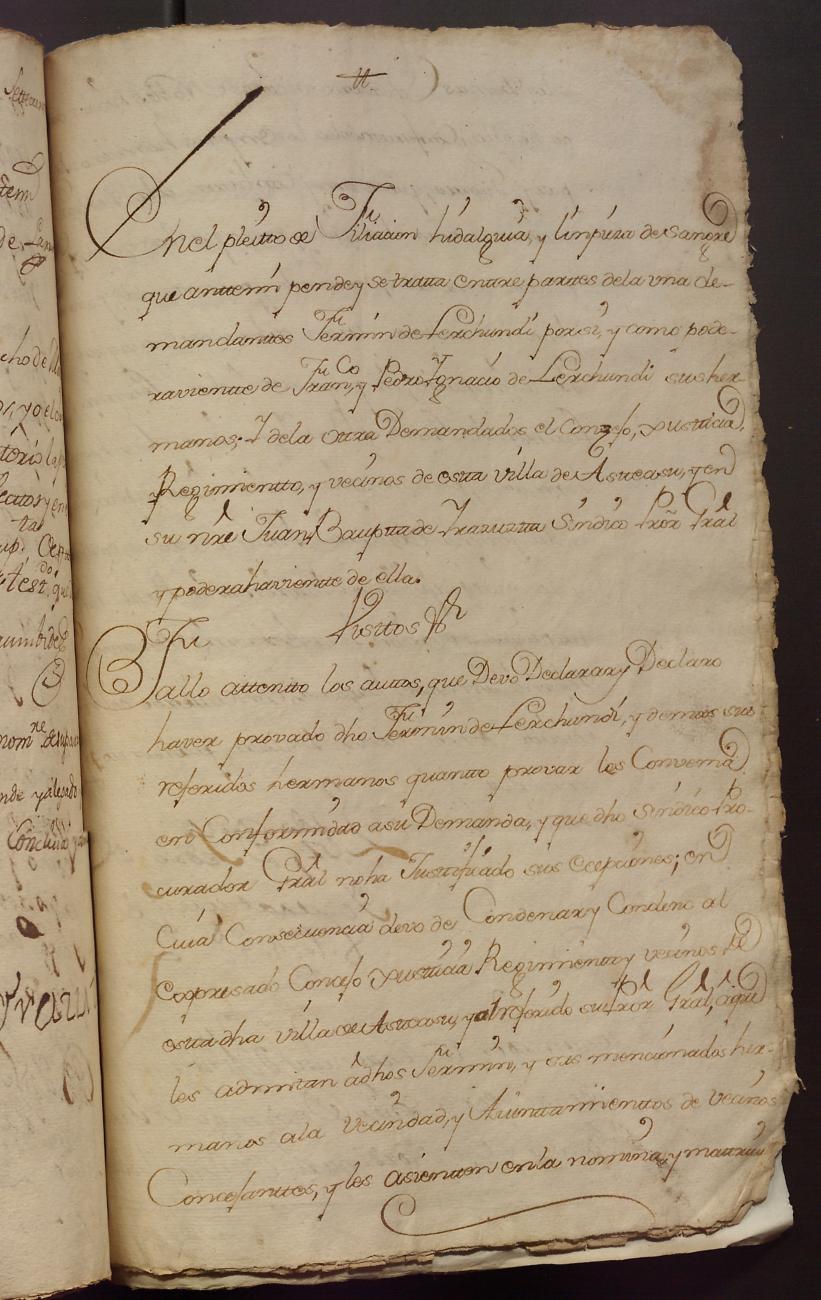 En el pleitto de Filiacion hidalguia, y limpieza de sangre
que antemi pende y se tratta entre partes dela una de-
mandantes Fermin de Lerchundi por si, y como pode-
raviente de Franco, y Pedro Ygnacio de Lerchundi sus her
manos; Y dela otra Demandados el Conzejo, Justicia,
Regimientto, y vecinos de esta villa de Asteasu, y en
su nre Juan Bauptta de Yrazuzta Sindico Pror Gral
y poderahaviente de ella.
Visttos &
Fallo attentto los auttos, que Devo Declarar y Declaro
haver provado dho Fermin de Lerchundi, y demas sus
referidos hermanos quantto provar les Convenia
en Conformidad asu Demanda, y que dho Sindico Pro-
curador Gral no ha Justificado sus ecepciones; en
Cuia Consecuencia devo de Condenar y Condeno al
expresado Concejo Justicia Regimiento y vecinos de
esta dha villa de Asteasu, y al referido su Pror Gral, aque
les admitan adhos Fermin, y sus mencionados her-
manos ala vecindad, y Aiuntamienttos de vecinos
Concejanttes, y les asientten en la nomina, y mattricu